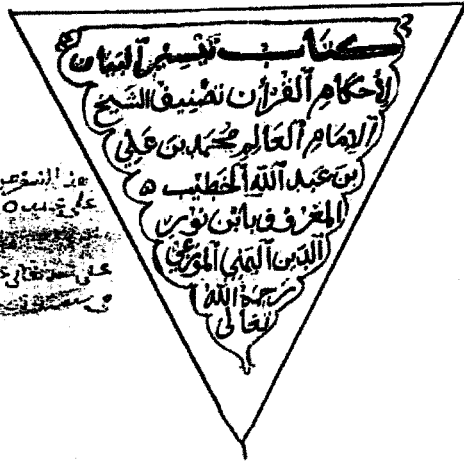 كتاب تيسير البيان
لأحكام القرآن تصنيف الشيخ
الإمام العالم محمد بن علي
بن عبد الله الخطيب ه
المعروف بابن نور
الدين اليمني الموزعي
رحمة الله
تعالى
على